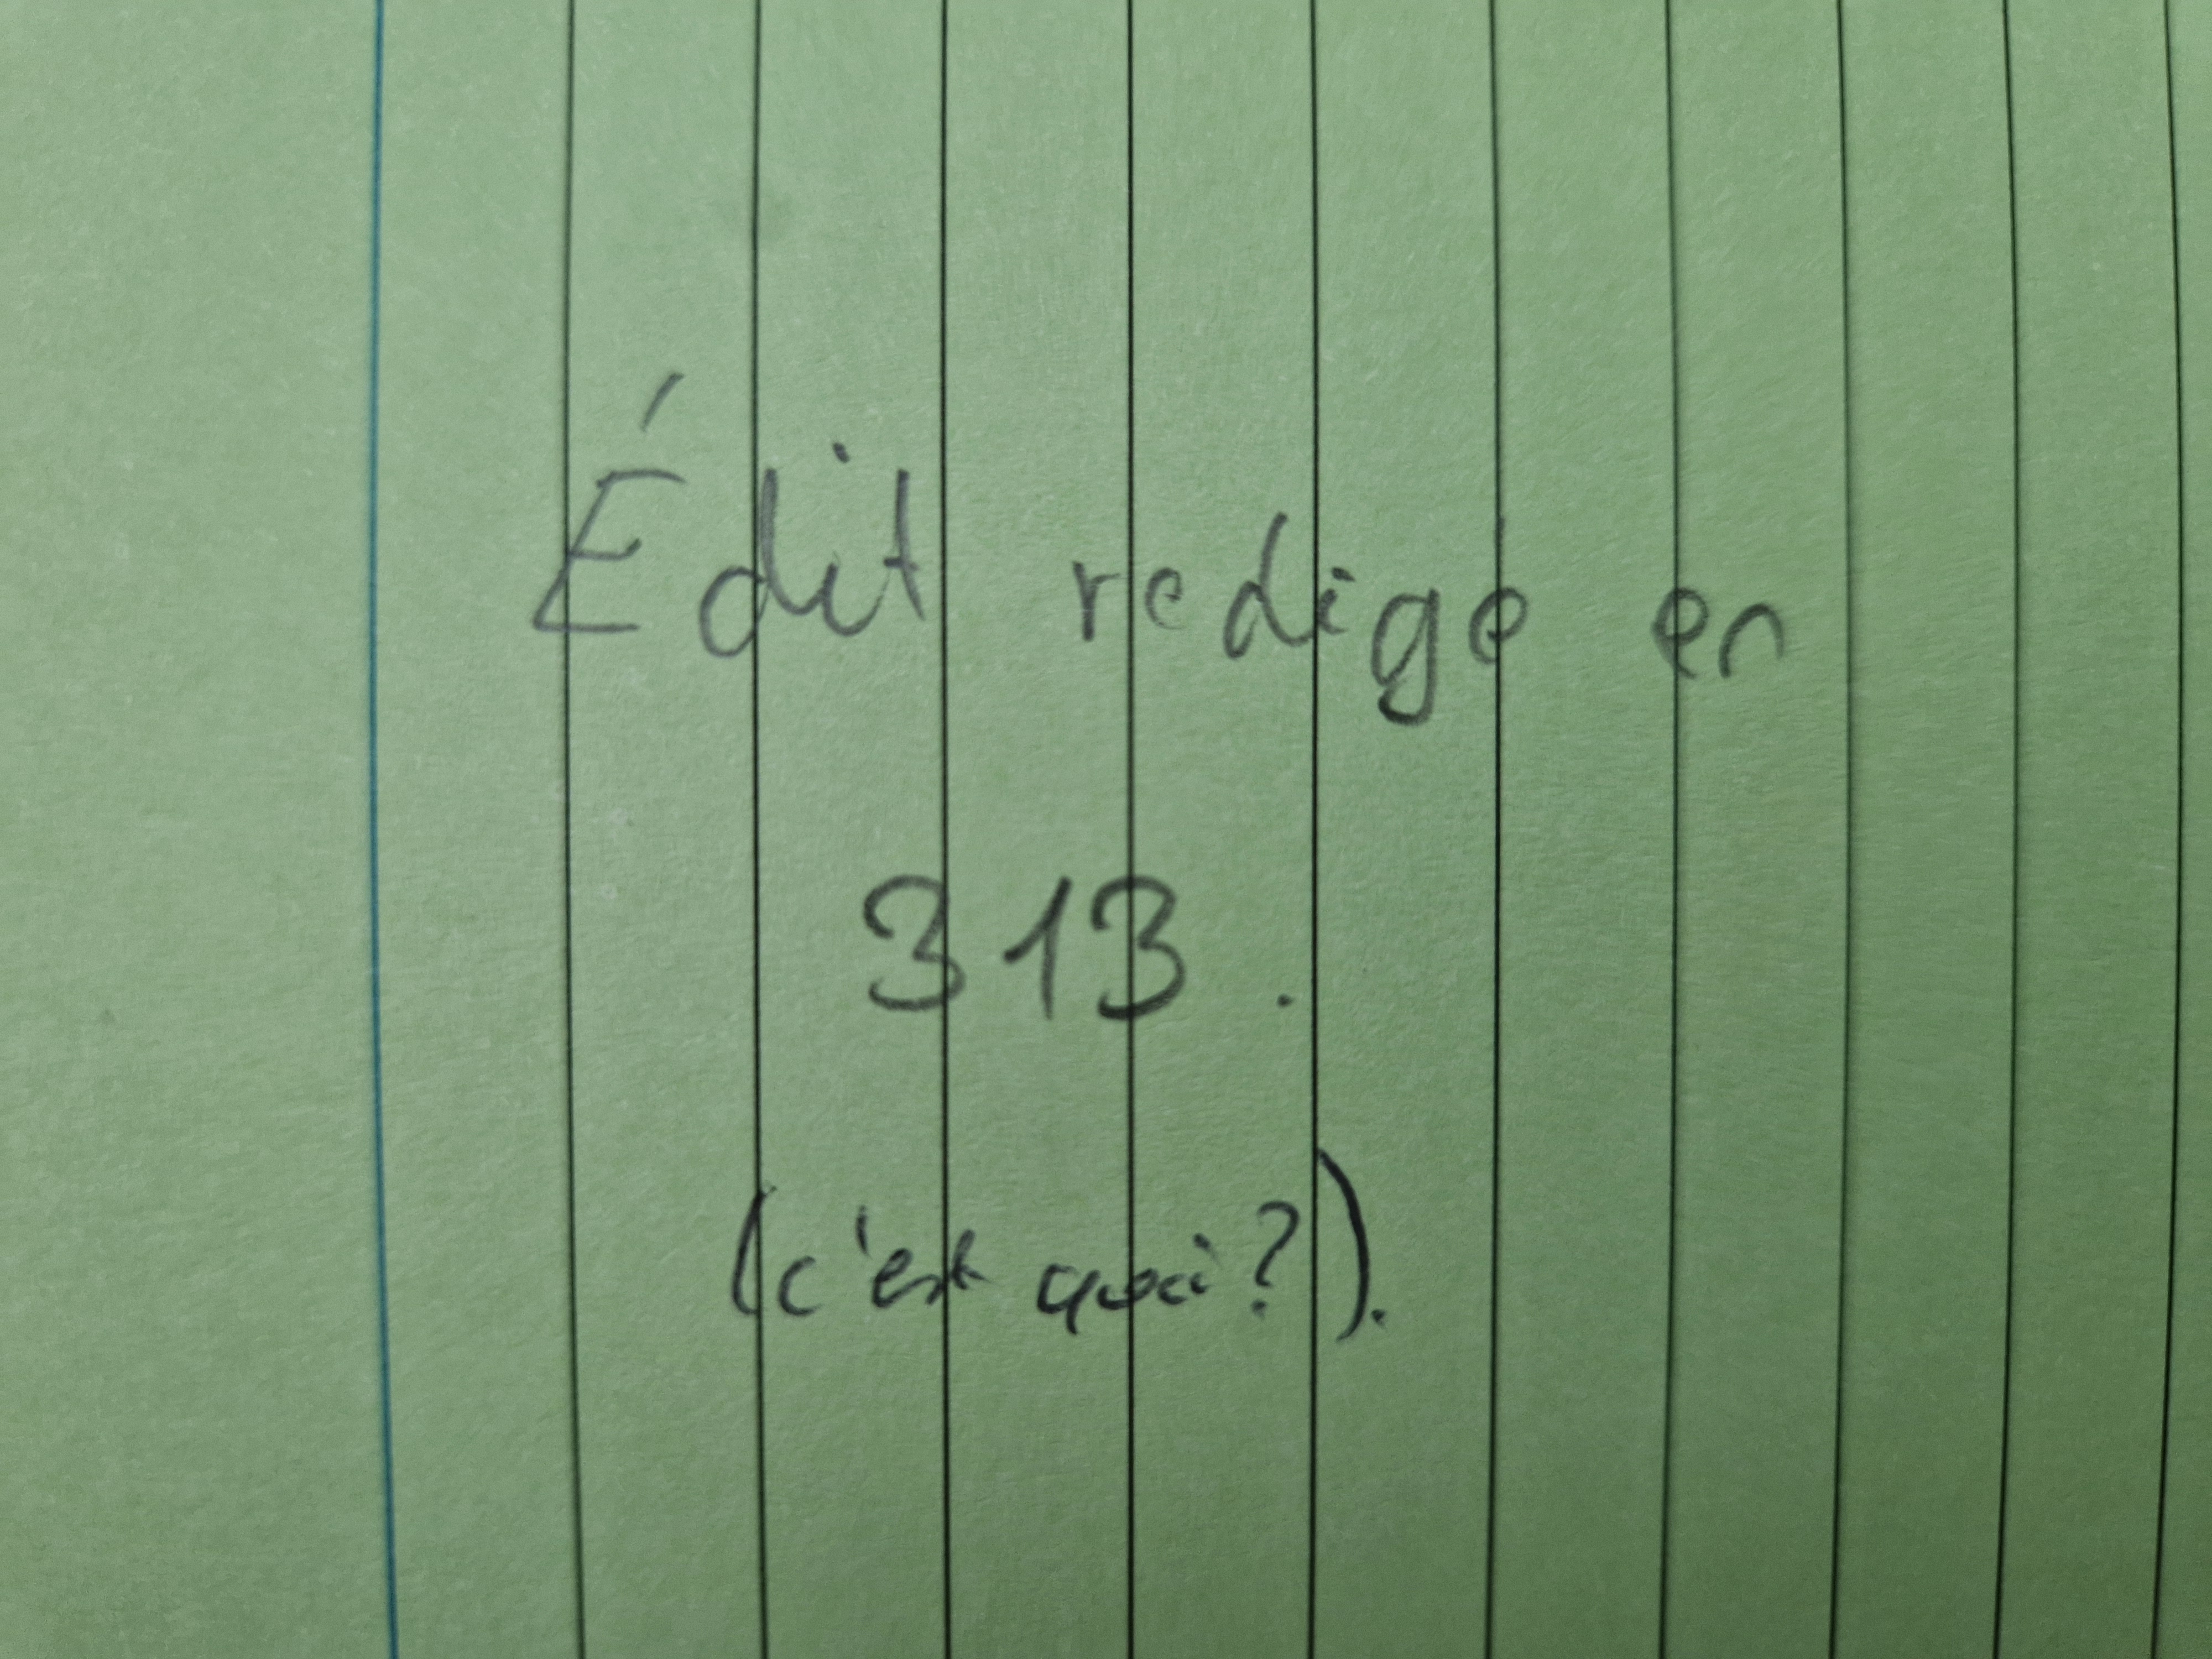 Édit redigé en
313.
(c'est quoi?).